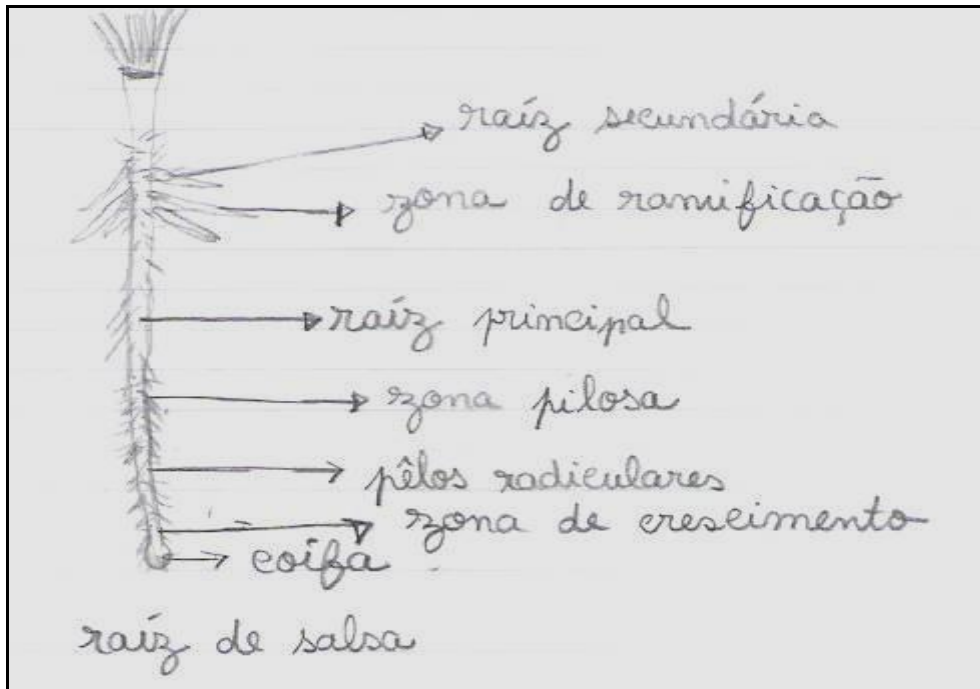 raíz secundária
zona de ramificação
raíz principal
zona pilosa
pêlos radiculares
zona de crescimento
coifa
raíz de salsa